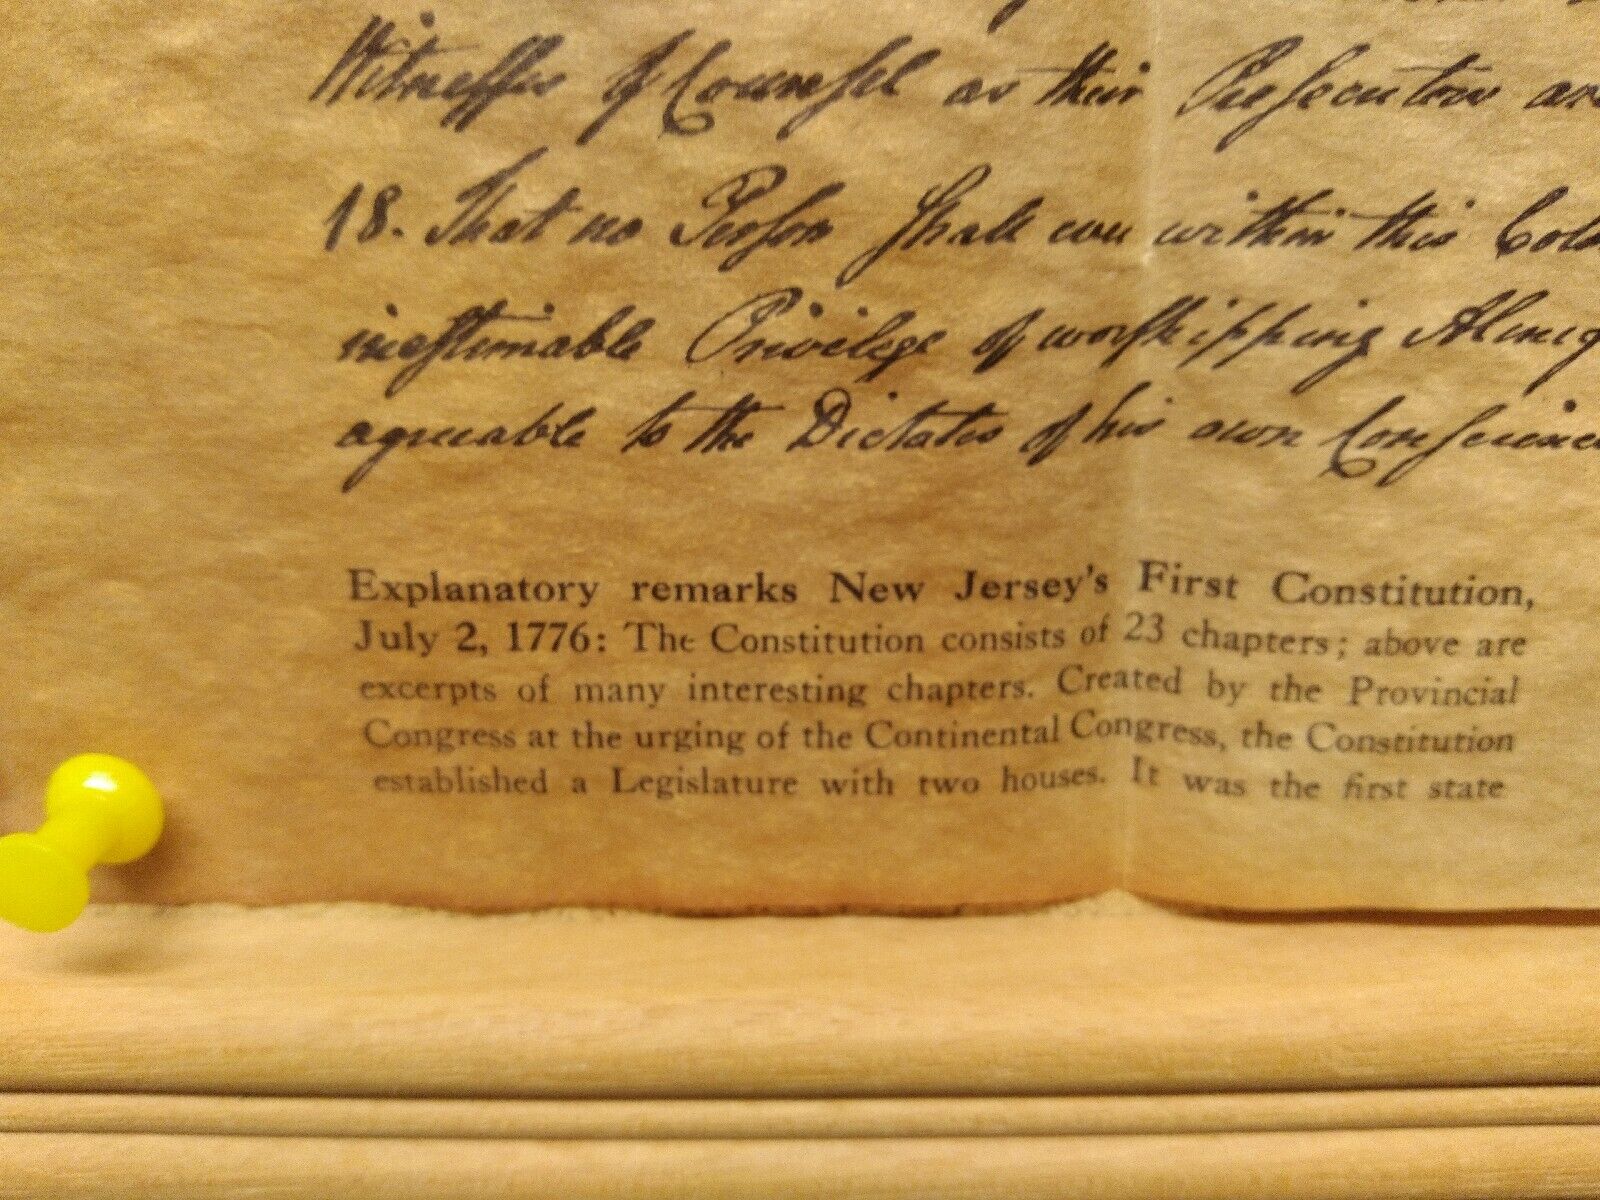 Witneſses & Counsel as their Prosecutors are
18. That no Person shall ever within this Colo
inestimable Privilege of worshipping Almig
agreeable to the Dictates of his own Conscienc
Explanatory remarks New Jersey's First Constitution,
July 2, 1776: The Constitution consists of 23 chapters; above are
excerpts of many interesting chapters. Created by the Provincial
Congress at the urging of the Continental Congress, the Constitution
established a Legislature with two houses. It was the first state